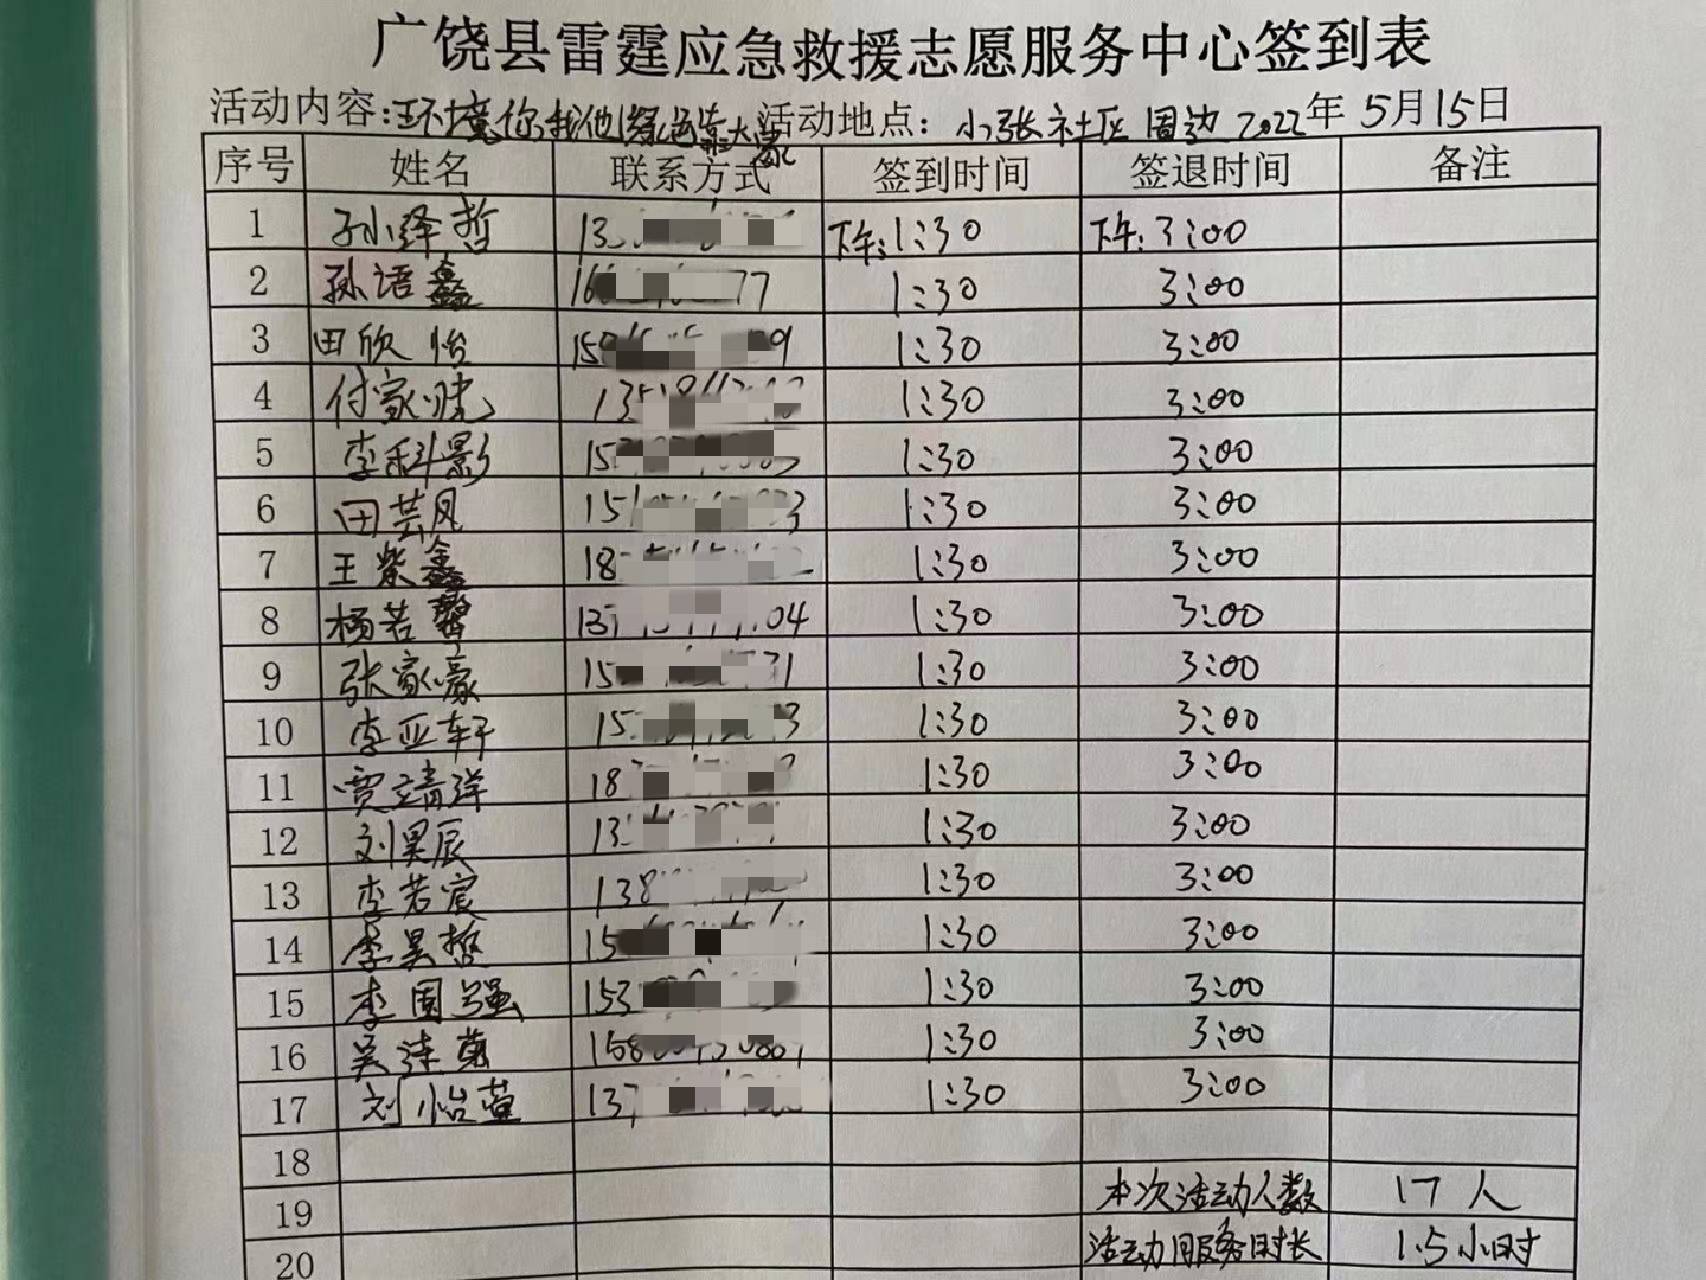 广饶县雷霆应急救援志愿服务中心签到表
活动内容:环境你我他绿色靠大家 活动地点: 小张社区周边 2022年5月15日
序号 姓名 联系方式 签到时间 签退时间 备注
1 孙绎哲 13 下午:1:30 下午:3:00
2 孙语鑫 16 77 1:30 3:00
3 田欣怡 15 9 1:30 3:00
4 付家 135 1:30 3:00
5 李科影 15 1:30 3:00
6 田芸凤 15 3 1:30 3:00
7 王紫鑫 18 1:30 3:00
8 杨若馨 13 04 1:30 3:00
9 张家豪 15 31 1:30 3:00
10 李亚轩 15 3 1:30 3:00
11 贾靖洋 18 1:30 3:00
12 刘昊辰 13 1:30 3:00
13 李若宸 138 1:30 3:00
14 李昊哲 15 1:30 3:00
15 李国强 153 1:30 3:00
16 吴连菊 158 1:30 3:00
17 刘怡萱 137 1:30 3:00
18
19 本次活动人数 17人
20 活动服务时长 1.5小时